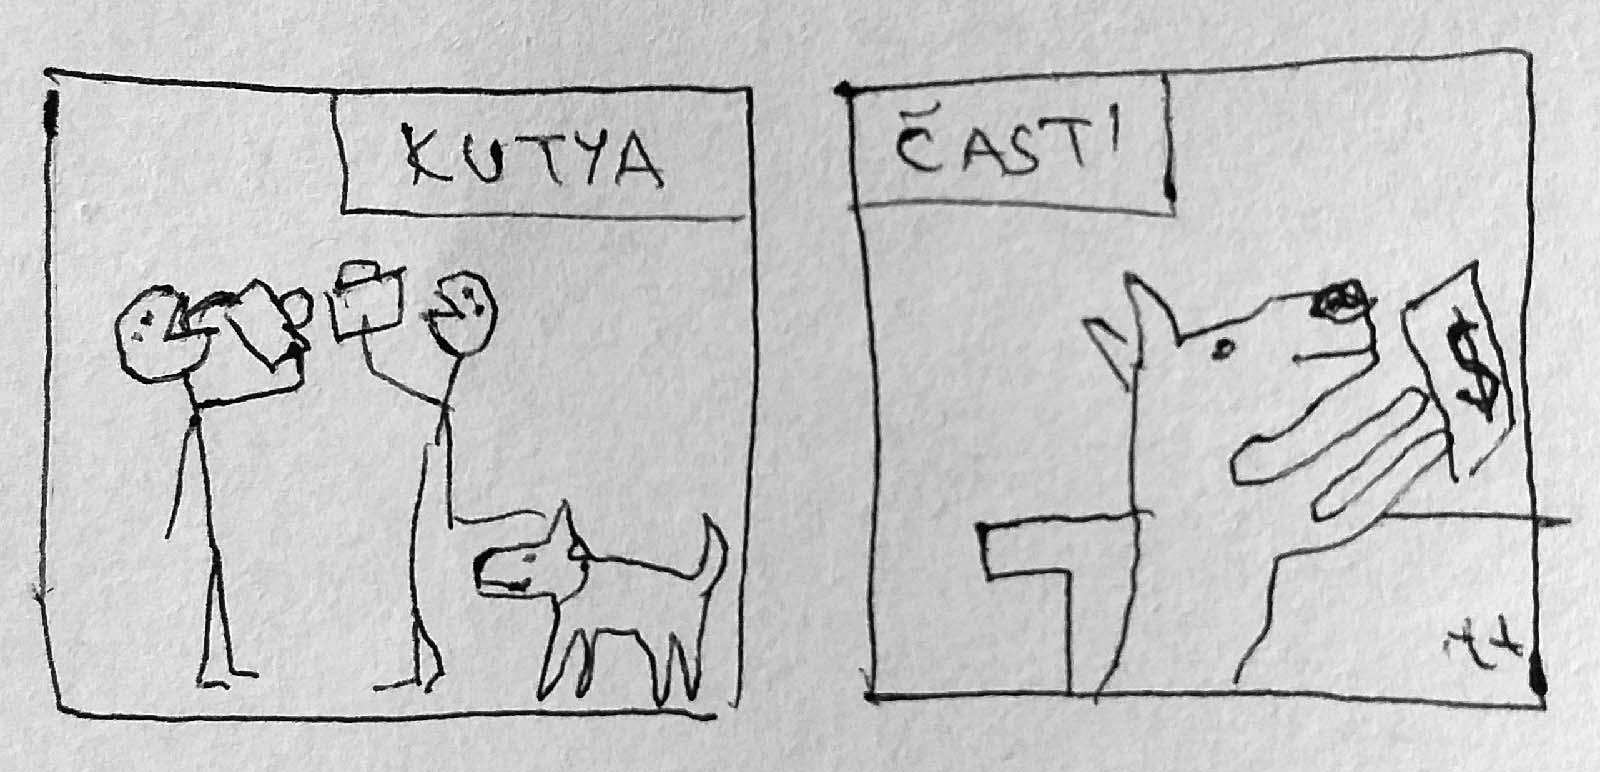 KUTYA
ČASTI
$